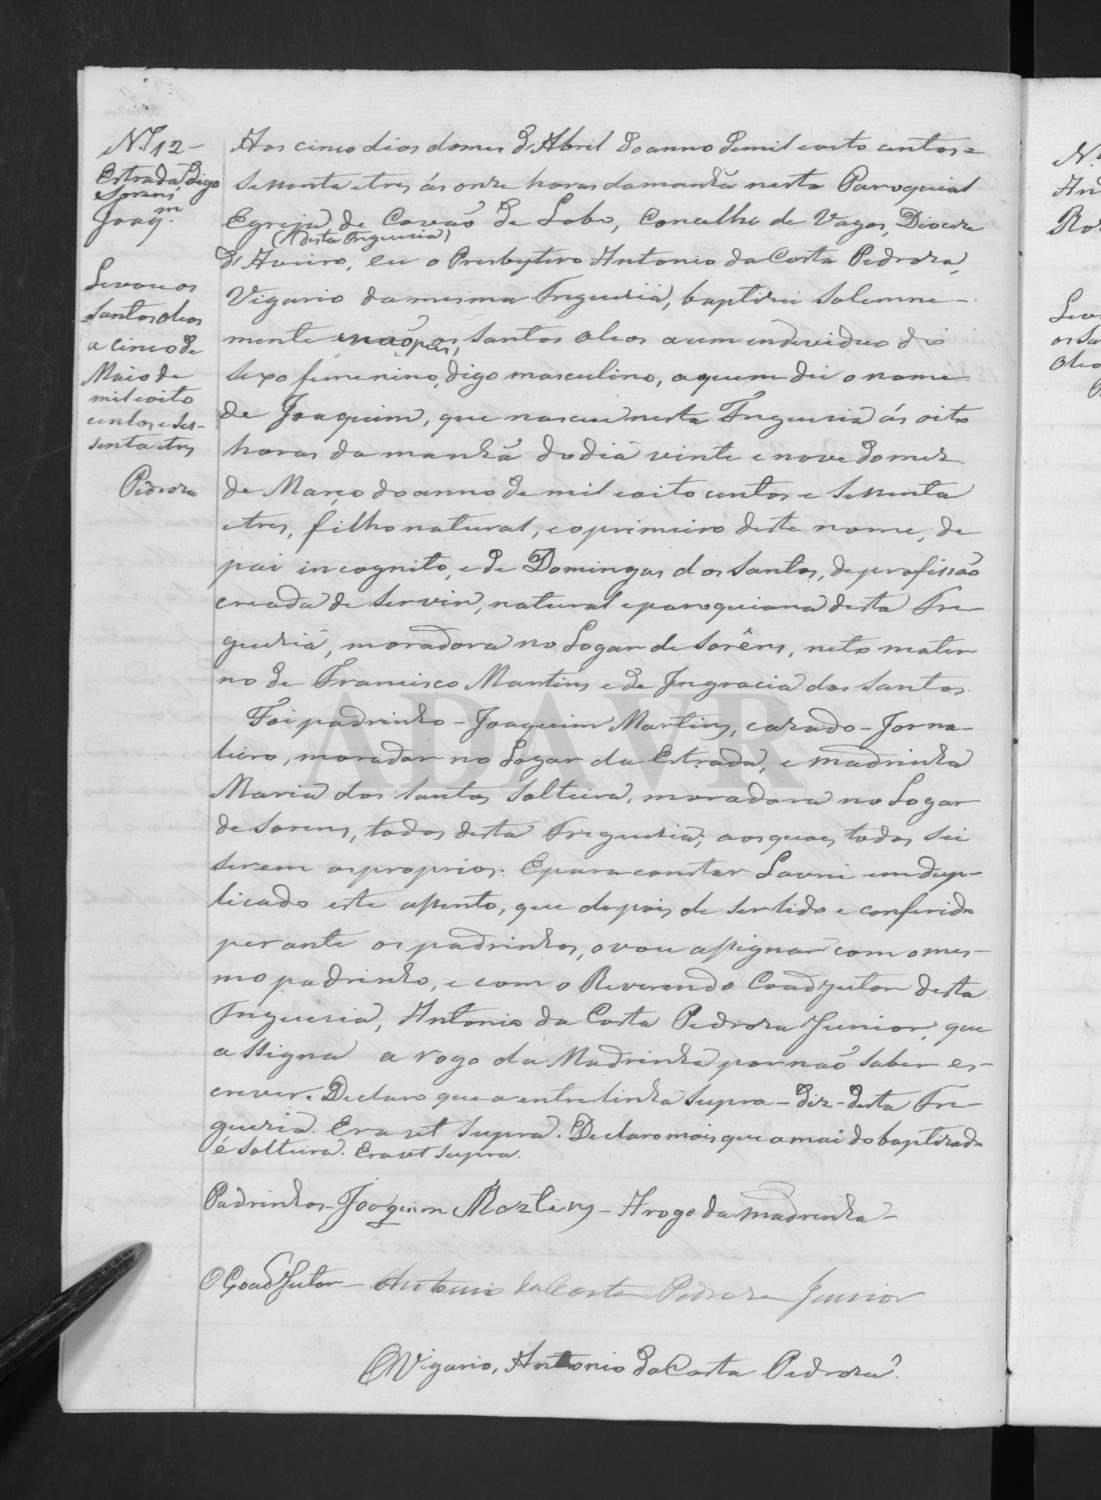 N.º 12 -
Estrada, digo
Sorens
Joaq.m
Levou os
Santos oleos
a cinco de
Maio de
mil e oito
centos e ses-
senta e tres
Pedroza
Aos cinco dias do mes d'Abril do anno de mil e oito centos e
sessenta e tres ás onze horas da manhã nesta Paroquial
Egreja de Covaõ de Lobo, Concelho de Vagos, Diocese
(desta Freguezia)
d'Aveiro, eu o Presbytero Antonio da Costa Pedroza,
Vigario da mesma Freguezia, baptizei Solemne-
mente e naõ pus os santos oleos a um individuo do
sexo femenino, digo masculino, a quem dei o nome
de Joaquim, que nasceu nesta Freguezia ás oito
horas da manhã do dia vinte e nove do mez
de Março do anno de mil e oito centos e sessenta
e tres, filho natural, e o primeiro deste nome, de
pai incognito, e de Domingas dos Santos, de profissaõ
creada de servir, natural e paroquiana desta Fre-
guezia, moradora no Logar de Sorêns, neto mater
no de Francisco Martins e de Ingracia dos Santos.
Foi padrinho - Joaquim Martins, cazado - Jorna-
leiro, morador no Logar da Estrada, e madrinha
Maria dos Santos Solteira, moradora no Logar
de Sorens, todos desta Freguezia; aos quaes todos sei
serem os proprios. E para constar Lavrei em dup-
licado este assento, que depois de ser lido e conferido
perante os padrinhos, o vou assignar com o mes-
mo padrinho, e com o Reverendo Coadjutor desta
Freguezia, Antonio da Costa Pedroza Junior, que
assigna a rogo da Madrinha por naõ saber es-
crever. Declaro que a entrelinha supra - diz - desta Fre-
guezia. Era ut supra. Declaro mais que a mai do baptizado
é solteira. Era ut supra.
Padrinhos - Joaquim Martins - A rogo da madrinha -
O Coadjutor - Antonio da Costa Pedroza Junior
O Vigario, Antonio da Costa Pedroza.
ADAVR